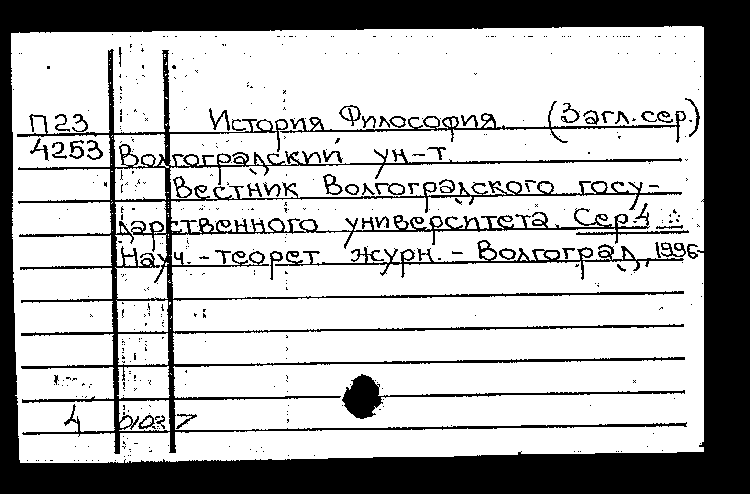 П23 История Философия. (Загл. сер.)
4253 Волгоградский ун-т.
Вестник Волгоградского госу-
дарственного университета. Сер 4 :
Науч. - теорет. журн. - Волгоград, 1996-
4